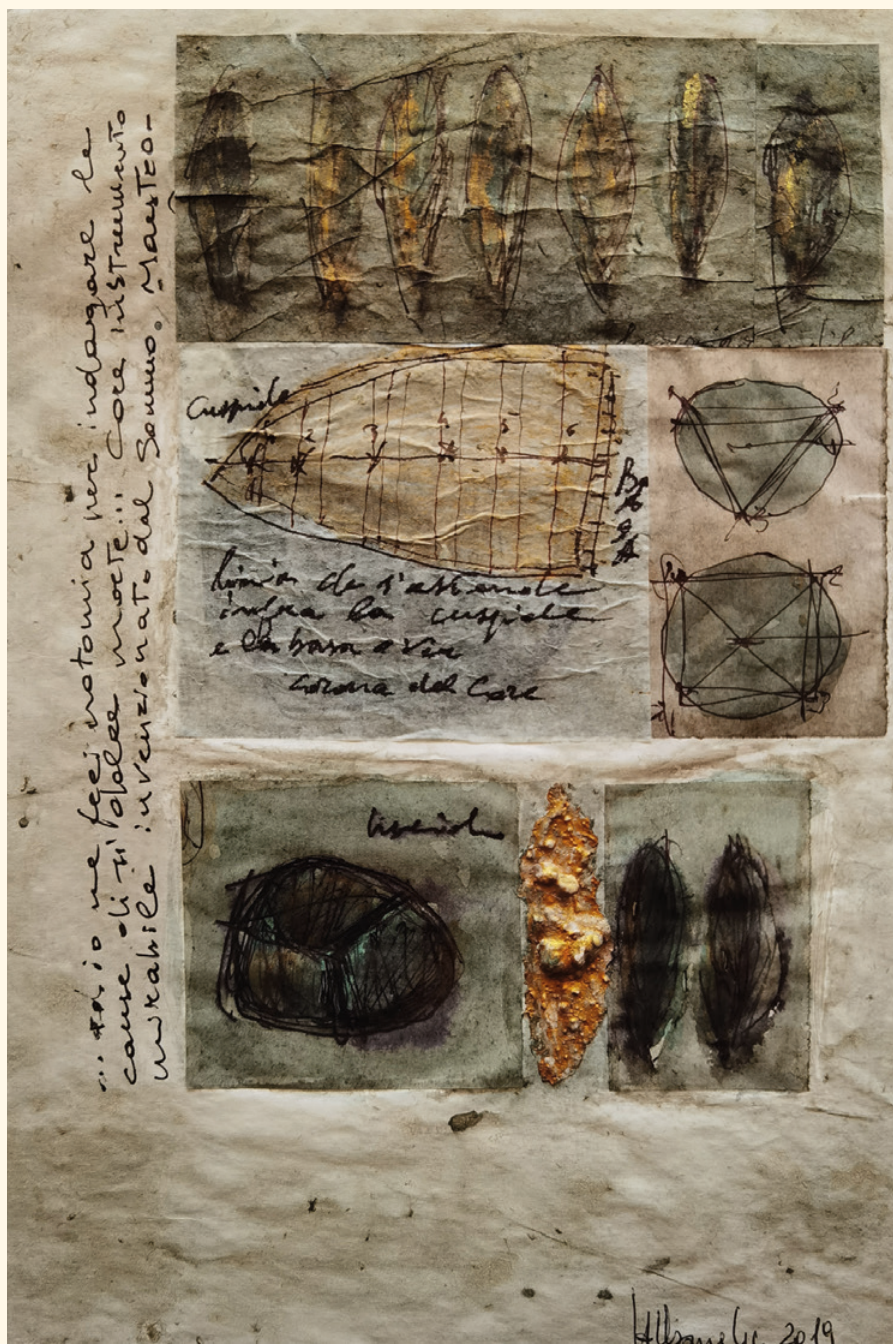 ... ed io ne feci notomia per indagare le
cause di sì dolce morte... Core instrumento
mirabile invenzionato dal Sommo Maestro-
Cuspide
1 2 3 4 5 6
BASA
linia che s'astende
infra la cuspide
e la basa over
corona del Core
2019